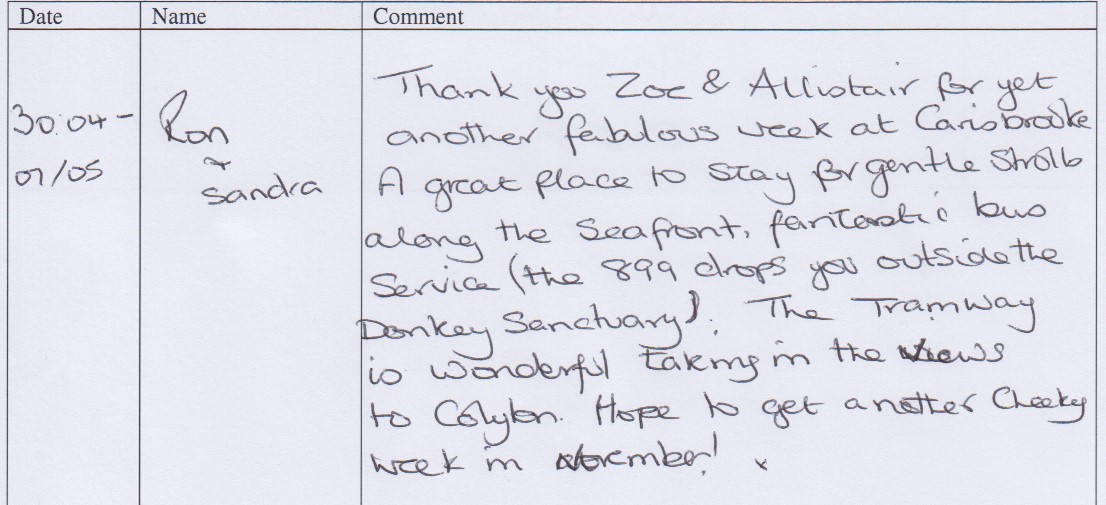 Date Name Comment
Thank you Zoe & Allistair for yet
30.04- Ron another fabulous week at Carisbrooke
07/05 + Sandra A great place to stay for gentle Strolls
along the Seafront, fantastic bus
Service (the 899 drops you outside the
Donkey Sanctuary). The Tramway
is wonderful taking in the views
to Colyton. Hope to get another Cheeky
week in November! x